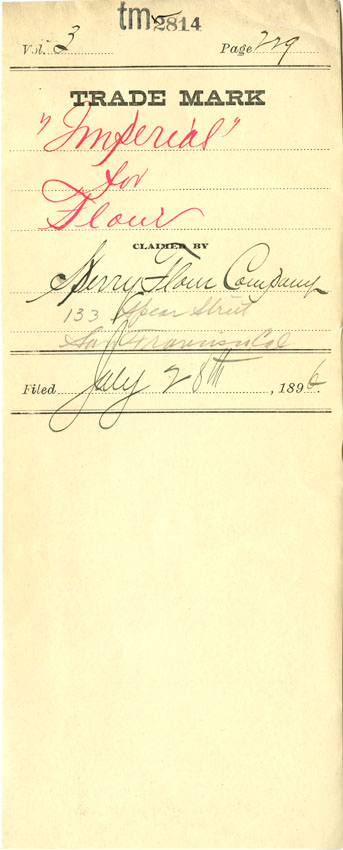 tm 2814
Vol. 3 Page 229
TRADE MARK
"Imperial"
for
Flour
CLAIMED BY
Sperry Flour Company
133 Spear Street
San Francisco Cal
Filed July 28th, 1896.